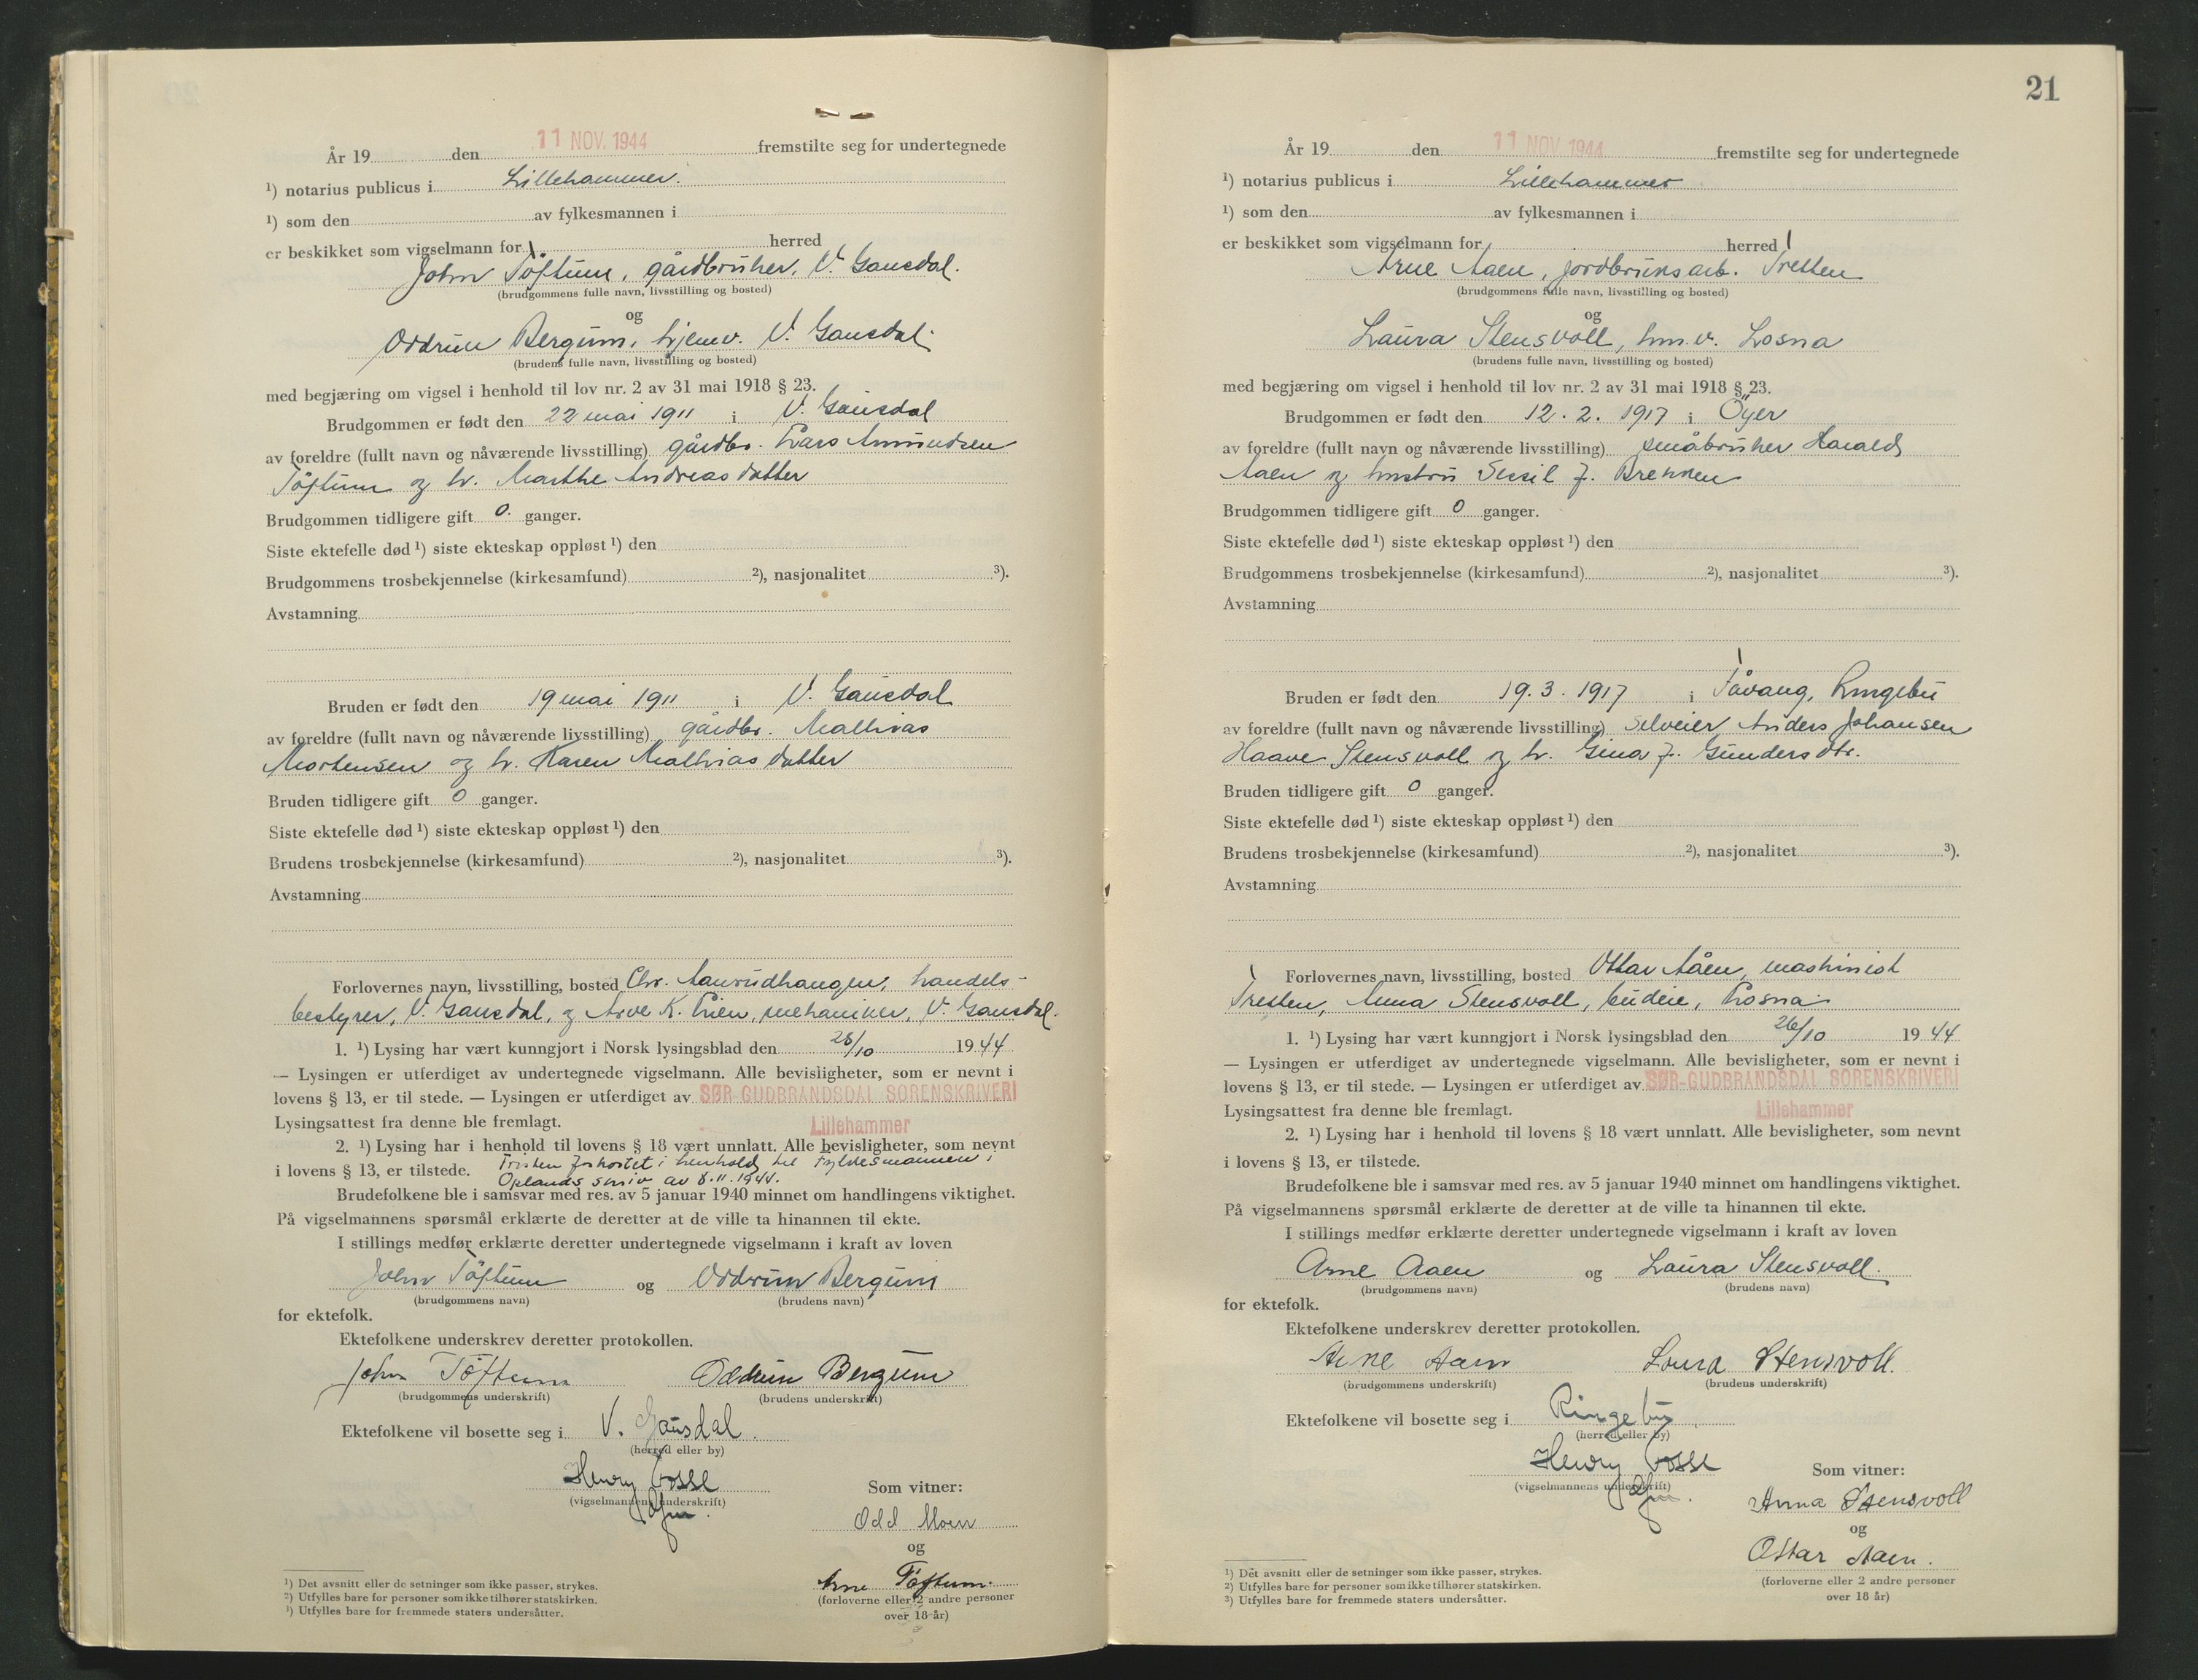 År 19 den 11 NOV. 1944 fremstilte seg for undertegnede
¹) notarius publicus i Lillehammer.
¹) som den av fylkesmannen i
er beskikket som vigselmann for herred
John Töftum, gårdbruker, V. Gausdal.
(brudgommens fulle navn, livsstilling og bosted)
og
Oddrun Bergum, hjemv. V. Gausdal.
(brudens fulle navn, livsstilling og bosted)
med begjæring om vigsel i henhold til lov nr. 2 av 31 mai 1918 § 23.
Brudgommen er født den 22 mai 1911 i V. Gausdal
av foreldre (fullt navn og nåværende livsstilling) gårdbr. Lars Amundsen
Töftum og h. Marthe Andreasdatter
Brudgommen tidligere gift 0. ganger.
Siste ektefelle død ¹) siste ekteskap oppløst ¹) den
Brudgommens trosbekjennelse (kirkesamfund) ²), nasjonalitet ³).
Avstamning
Bruden er født den 19 mai 1911 i V. Gausdal
av foreldre (fullt navn og nåværende livsstilling) gårdbr. Mathias
Mortensen og h. Karen Mathiasdatter
Bruden tidligere gift 0 ganger.
Siste ektefelle død ¹) siste ekteskap oppløst ¹) den
Brudens trosbekjennelse (kirkesamfund) ²), nasjonalitet ³).
Avstamning
Forlovernes navn, livsstilling, bosted Chr. Aanrudhaugen, handels-
bestyrer, V. Gausdal, og Arve K. Lien, mekaniker, V. Gausdal.
1. ¹) Lysing har vært kunngjort i Norsk lysingsblad den 28/10 19 44
— Lysingen er utferdiget av undertegnede vigselmann. Alle bevisligheter, som er nevnt i
lovens § 13, er til stede. — Lysingen er utferdiget av SØR-GUDBRANDSDAL SORENSKRIVERI
Lysingsattest fra denne ble fremlagt. Lillehammer
2. ¹) Lysing har i henhold til lovens § 18 vært unnlatt. Alle bevisligheter, som nevnt
i lovens § 13, er tilstede. Fristen forkortet i henhold til Fylkesmannen i
Oplands skriv av 8.11.1944.
Brudefolkene ble i samsvar med res. av 5 januar 1940 minnet om handlingens viktighet.
På vigselmannens spørsmål erklærte de deretter at de ville ta hinannen til ekte.
I stillings medfør erklærte deretter undertegnede vigselmann i kraft av loven
John Töftum og Oddrun Bergum
(brudgommens navn) (brudens navn)
for ektefolk.
Ektefolkene underskrev deretter protokollen.
John Töftum Oddrun Bergum
(brudgommens underskrift) (brudens underskrift)
Ektefolkene vil bosette seg i V. Gausdal.
(herred eller by)
Henry Fosse
(vigselmannens underskrift)
Som vitner:
Odd Moen
og
Arne Töftum.
(forloverne eller 2 andre personer
over 18 år)
¹) Det avsnitt eller de setninger som ikke passer, strykes.
²) Utfylles bare for personer som ikke tilhører statskirken.
³) Utfylles bare for fremmede staters undersåtter.
21
År 19 den 11 NOV 1944 fremstilte seg for undertegnede
¹) notarius publicus i Lillehammer
¹) som den av fylkesmannen i
er beskikket som vigselmann for herred
Arne Aaen, jordbruksarb. Tretten
(brudgommens fulle navn, livsstilling og bosted)
og
Laura Stensvoll, hm.v. Losna
(brudens fulle navn, livsstilling og bosted)
med begjæring om vigsel i henhold til lov nr. 2 av 31 mai 1918 § 23.
Brudgommen er født den 12. 2. 1917 i Öyer
av foreldre (fullt navn og nåværende livsstilling) småbruker Harald
Aaen og hustru Sessil f. Brekken
Brudgommen tidligere gift 0 ganger.
Siste ektefelle død ¹) siste ekteskap oppløst ¹) den
Brudgommens trosbekjennelse (kirkesamfund) ²), nasjonalitet ³).
Avstamning
Bruden er født den 19. 3. 1917 i Fåvang, Ringebu
av foreldre (fullt navn og nåværende livsstilling) selveier Anders Johansen
Haave Stensvoll og h. Gina f. Gundersdtr.
Bruden tidligere gift 0 ganger.
Siste ektefelle død ¹) siste ekteskap oppløst ¹) den
Brudens trosbekjennelse (kirkesamfund) ²), nasjonalitet ³).
Avstamning
Forlovernes navn, livsstilling, bosted Ottar Aåen, maskinist
Tretten, Anna Stensvoll, budeie, Losna.
1. ¹) Lysing har vært kunngjort i Norsk lysingsblad den 26/10 19 44
— Lysingen er utferdiget av undertegnede vigselmann. Alle bevisligheter, som er nevnt i
lovens § 13, er til stede. — Lysingen er utferdiget av SØR-GUDBRANDSDAL SORENSKRIVERI
Lysingsattest fra denne ble fremlagt. Lillehammer
2. ¹) Lysing har i henhold til lovens § 18 vært unnlatt. Alle bevisligheter, som nevnt
i lovens § 13, er tilstede.
Brudefolkene ble i samsvar med res. av 5 januar 1940 minnet om handlingens viktighet.
På vigselmannens spørsmål erklærte de deretter at de ville ta hinannen til ekte.
I stillings medfør erklærte deretter undertegnede vigselmann i kraft av loven
Arne Aaen og Laura Stensvoll.
(brudgommens navn) (brudens navn)
for ektefolk.
Ektefolkene underskrev deretter protokollen.
Arne Aaen Laura Stensvoll.
(brudgommens underskrift) (brudens underskrift)
Ektefolkene vil bosette seg i Ringebu
(herred eller by)
Henry Fosse
(vigselmannens underskrift)
Som vitner:
Anna Stensvoll
og
Ottar Aaen.
(forloverne eller 2 andre personer
over 18 år)
¹) Det avsnitt eller de setninger som ikke passer, strykes.
²) Utfylles bare for personer som ikke tilhører statskirken.
³) Utfylles bare for fremmede staters undersåtter.